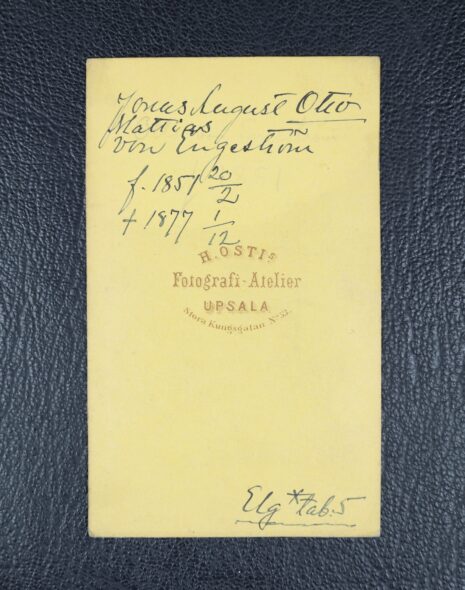 Jonas August Otto
Mattias
von Engeström
f. 1851 20/2
† 1877 1/12
H. OSTIs
Fotografi-Atelier
UPSALA
Stora Kungsgatan No 32.
Elg * tab. 5